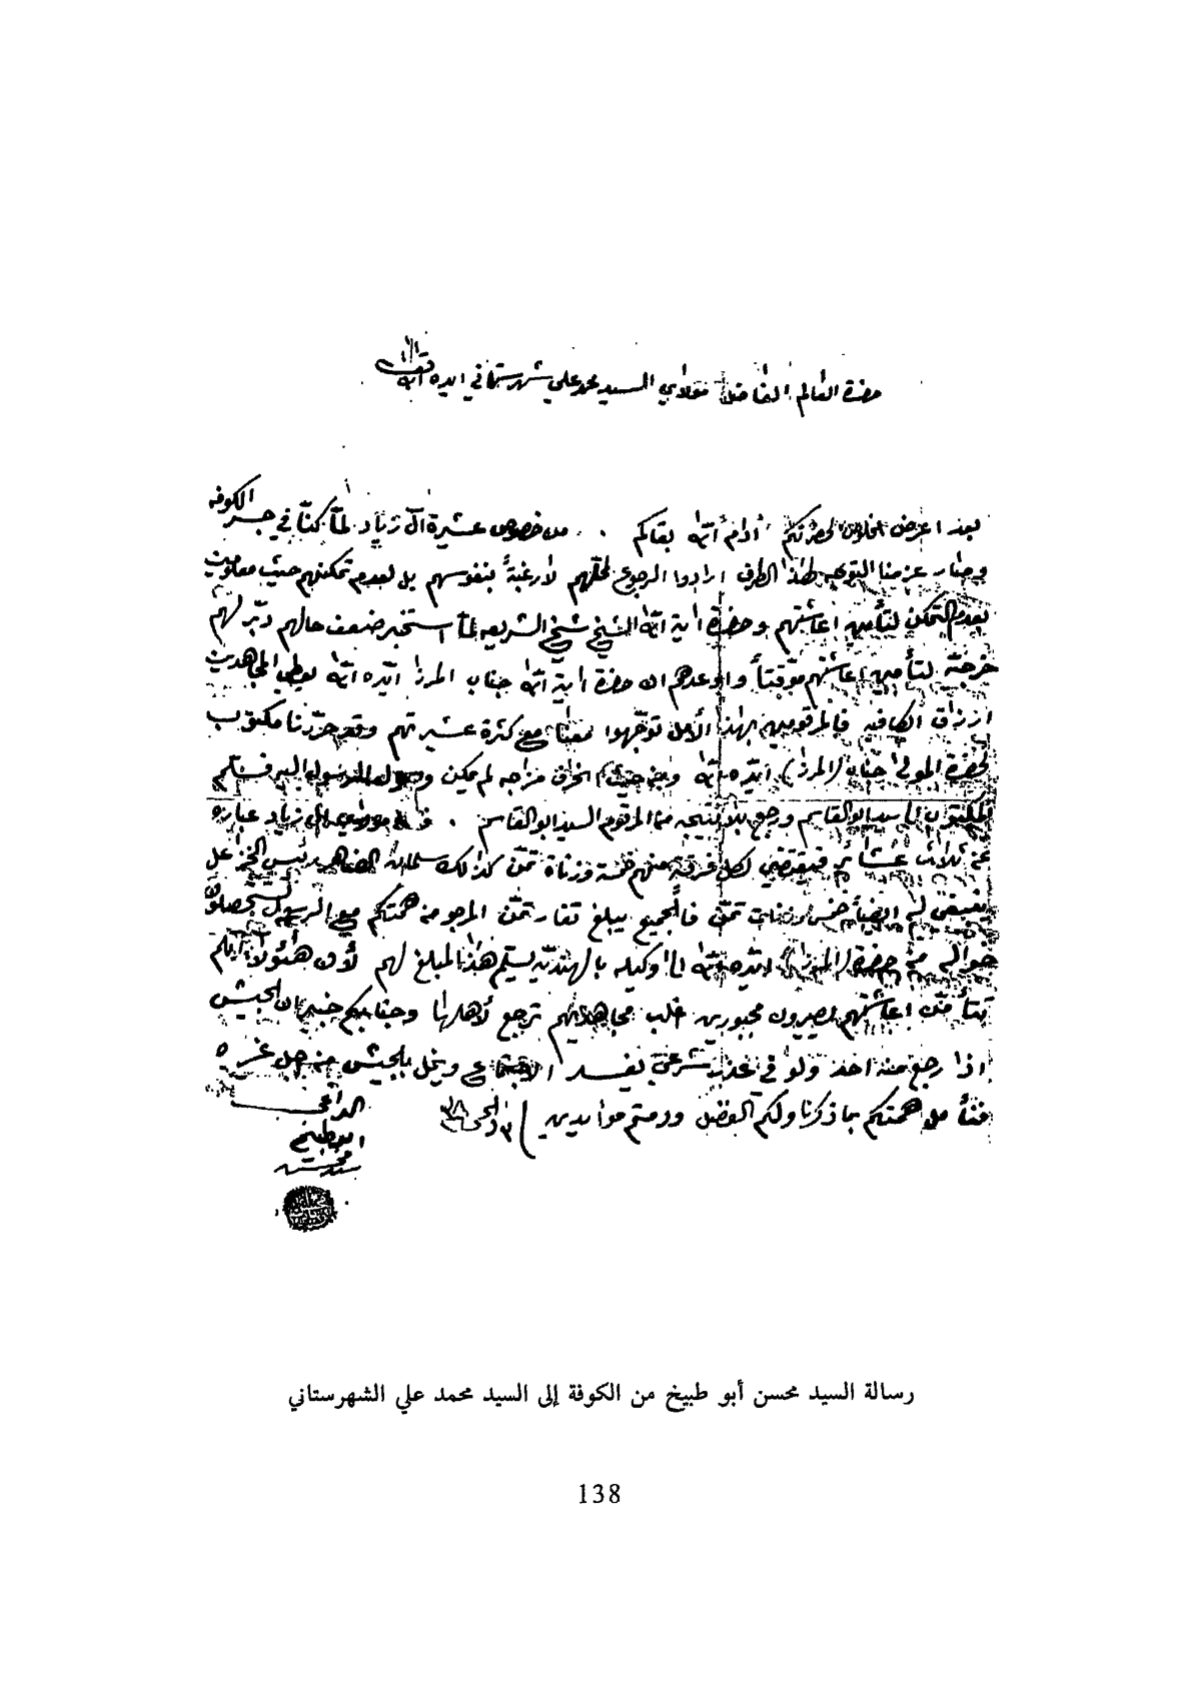 حضرة العالم الفاضل مولاي السيد محمد علي شهرستاني ايده الله تعالى
بعد اعرض الخلوص لحضرتكم أدام الله بقاكم . من خصوص عشيرة آل زياد لمّا كنّا في جسر الكوفه
وصار عزمنا التوجه لهذا الطرف ارادوا الرجوع لمحلّهم لا رغبةً بنفوسهم بل لعدم تمكنهم حيث
بعدم التمكن لتأمين اعاشتهم وحضرة اية الله الشيخ شيخ الشريعه لمّا استخبر ضعف حالهم دبّر لهم
خرجيّة لتأمين اعاشتهم موقتاً واوعدهم ان حضرة اية الله جناب المرزا ايّده الله يعطي المجاهدين
ارزاق الكافيه فالمرقومين بهذا الأمل توجّهوا معنا مع كثرة عشيرتهم وقد حرّرنا مكتوب
لحضرة المولى جناب (المرزا) ايّده الله ومن حيث انحراف مزاجه لم يمكن وصول المرسول اليه فسلم
المكتوب الى السيد ابو القاسم ورجع بلا نتيجه من المرقوم السيد ابو القاسم . آل زياد عباره
عن ثلاث عشائر فيقتضي لكل فرقة منهم خمسة وزناة تمّن كذالك سلمان الضاهر رئيس الخزاعل
يقتضي له ايضاً خمس وزنات تمّن فالجميع يبلغ تغار تمّن المرجو من همتكم مع الرسول
حواله من حضرة (الميرزا) ايّده الله الى وكيله بالهنديّه يسلم هذا المبلغ لهم لأن هئولاء اذا لم
تتأمّن اعاشتهم يصيرون مجبورين اغلب مجاهدينهم ترجع لأهلها وجنابكم خبير ان الجيش
اذا رجع منه احد ولو في عذر شرعي يفسد الاجتماع ويخل بالجيش من جهل غيره
من همتكم بما ذكرنا ولكم الفضل ودمتم موأيدين
الداعي
ابو طبيخ
سيد محسن
رسالة السيد محسن أبو طبيخ من الكوفة إلى السيد محمد علي الشهرستاني
138